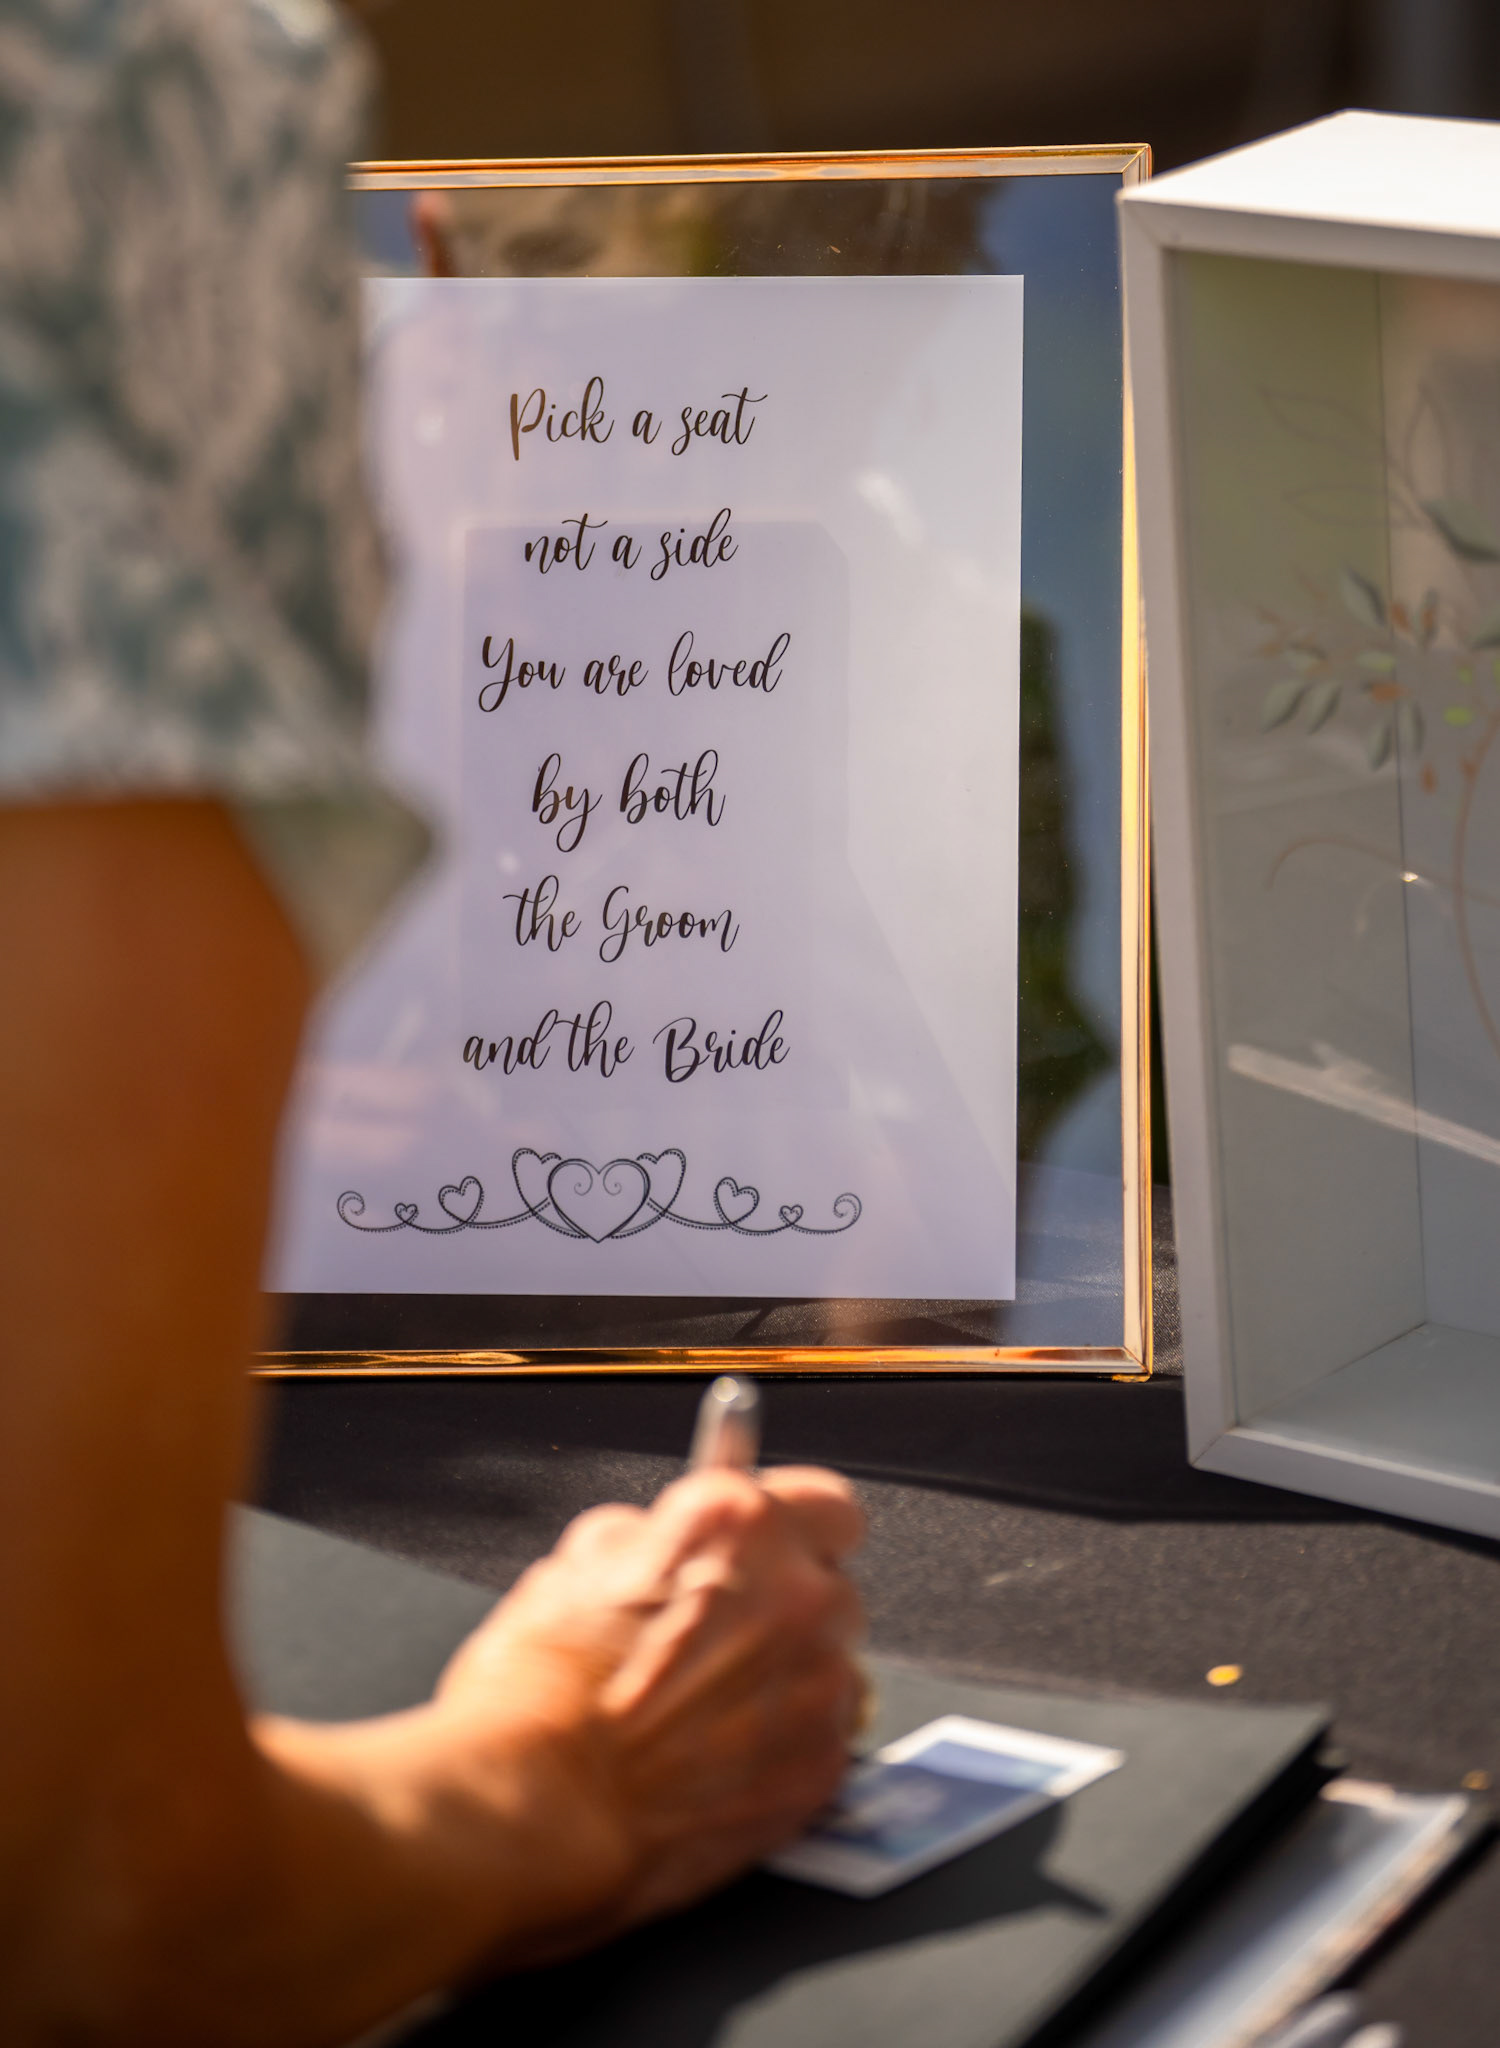 Pick a seat
not a side
You are loved
by both
the Groom
and the Bride